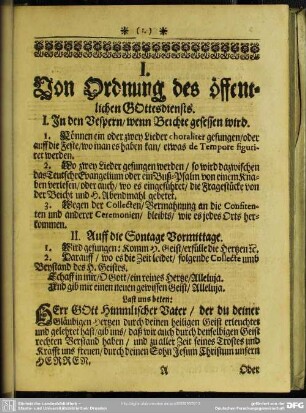 (1.)
I.
Von Ordnung des öffent-
lichen GOttesdiensts.
I. In den Vespern/ wenn Beichte gesessen wird.
1. Können ein oder zwey Lieder choraliter gesungen/oder
auff die Feste/ wo man es haben kan/ etwas de Tempore figuri-
ret werden.
2. Wo zwey Lieder gesungen werden / so wird dazwischen
das Teutsche Evangelium oder ein Buß-Psalm von einem Kna-
ben verlesen/ oder auch/ wo es eingeführet/ die Fragestücke von
der Beicht und H. Abendmahl gebetet.
3. Wegen der Collecten/ Vermahnung an die Confitenten
und anderer Ceremonien/ bleibts/ wie es jedes Orts her-
kommen.
II. Auff die Sontage Vormittage.
1. Wird gesungen: Komm H. Geist/ erfülle die Hertzen ꝛc.
2. Darauff / wo es die Zeit leidet/ folgende Collecte umb
Beystand des H. Geistes.
Schaff in mir/ O Gott/ ein reines Hertze/ Alleluja.
Und gib mir einen neuen gewissen Geist/ Alleluja.
Last uns beten:
HErr GOtt Himmlischer Vater / der du deiner
Gläubigen Hertzen durch deinen heiligen Geist erleuchtet
und gelehret hast/ gib uns/ daß wir auch durch denselbigen Geist
rechten Verstand haben / und zu aller Zeit seines Trostes und
Krafft uns freuen/ durch deinen Sohn Jesum Christum unsern
HERREN,
A
Oder